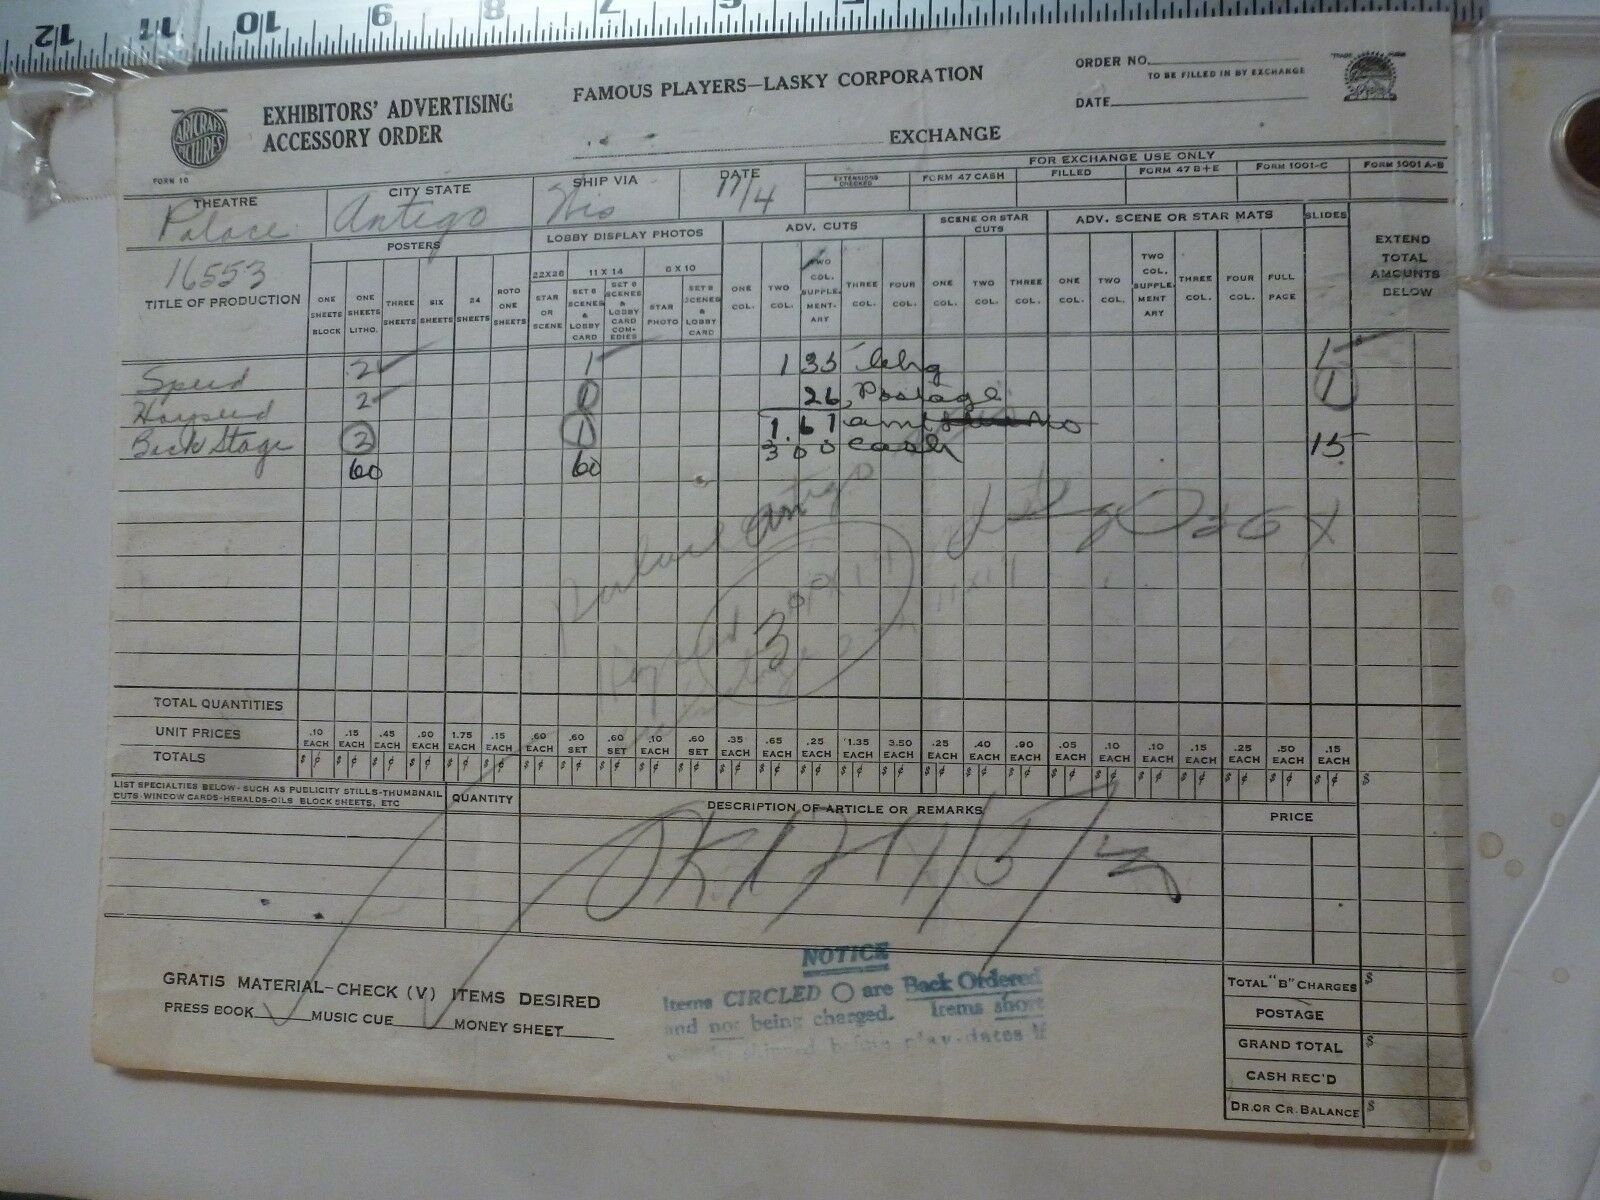 12 11 10 9 8 7 6 5
ARTCRAFT PICTURES
EXHIBITORS' ADVERTISING
ACCESSORY ORDER
FORM 10
FAMOUS PLAYERS—LASKY CORPORATION
EXCHANGE
ORDER NO.
TO BE FILLED IN BY EXCHANGE
DATE
THEATRE CITY STATE SHIP VIA DATE
Palace Antigo Wis 11/4
FOR EXCHANGE USE ONLY
EXTENSIONS CHECKED FORM 47 CASH FILLED FORM 47 B+E FORM 1001-C FORM 1001 A-B
16553
TITLE OF PRODUCTION
POSTERS
ONE SHEETS BLOCK
ONE SHEETS LITHO.
THREE SHEETS
SIX SHEETS
24 SHEETS
ROTO ONE SHEETS
LOBBY DISPLAY PHOTOS
22X28 11 X 14 8 X 10
STAR OR SCENE
SET 8 SCENES & LOBBY CARD
SET 6 SCENES & LOBBY CARD COMEDIES
STAR PHOTO
SET 8 SCENES & LOBBY CARD
ADV. CUTS
ONE COL.
TWO COL.
TWO COL. SUPPLE-MENT-ARY
THREE COL.
FOUR COL.
SCENE OR STAR CUTS
ONE COL.
TWO COL.
THREE COL.
ADV. SCENE OR STAR MATS
ONE COL.
TWO COL.
TWO COL. SUPPLE-MENT ARY
THREE COL.
FOUR COL.
FULL PAGE
SLIDES
EXTEND TOTAL AMOUNTS BELOW
Speed 2 1 1 35 chg 1
Hayseed 2 1 26 Postage 1
Back Stage 2 1 1.61 amt
60 60 300 cash 15
Antigo
3
TOTAL QUANTITIES
UNIT PRICES .10 EACH .15 EACH .45 EACH .90 EACH 1.75 EACH .15 EACH .60 EACH .60 SET .60 SET .10 EACH .60 SET .35 EACH .65 EACH .25 EACH 1.35 EACH 3.50 EACH .25 EACH .40 EACH .90 EACH .05 EACH .10 EACH .10 EACH .15 EACH .25 EACH .50 EACH .15 EACH
TOTALS $ ¢ $ ¢ $ ¢ $ ¢ $ ¢ $ ¢ $ ¢ $ ¢ $ ¢ $ ¢ $ ¢ $ ¢ $ ¢ $ ¢ $ ¢ $ ¢ $ ¢ $ ¢ $ ¢ $ ¢ $ ¢ $ ¢ $ ¢ $ ¢ $ ¢ $ ¢ $
LIST SPECIALTIES BELOW-SUCH AS PUBLICITY STILLS-THUMBNAIL
CUTS-WINDOW CARDS-HERALDS-OILS BLOCK SHEETS, ETC
QUANTITY DESCRIPTION OF ARTICLE OR REMARKS PRICE
OK
GRATIS MATERIAL-CHECK (V) ITEMS DESIRED
PRESS BOOK MUSIC CUE MONEY SHEET
NOTICE
Items CIRCLED O are Back Ordered
and not being charged. Items short
shipped before play-dates if
TOTAL "B" CHARGES $
POSTAGE
GRAND TOTAL $
CASH REC'D
DR. OR CR. BALANCE $